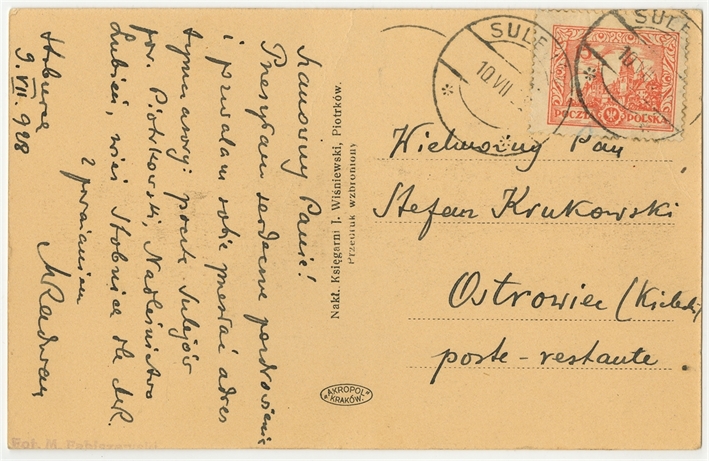 Stobnica
9. VII. 928
Szanowny Panie!
Przesyłam serdeczne pozdrowienia
i pozwalam sobie przesłać adres
tymczasowy: poczta Sulejów
pow. Piotrkowski, Nadleśnictwo
Lubień, wieś Stobnica dla MR.
Z poważaniem
MRadwan
Nakł. Księgarni J. Wiśniewski, Piotrków.
Przedruk wzbroniony
AKROPOL
KRAKÓW.
Fot. M. Fabiszewski
SULE
10 VII
SULE
10 VII
POCZTA POLSKA
Wielmożny Pan
Stefan Krukowski
Ostrowiec (Kielecki)
poste-restante